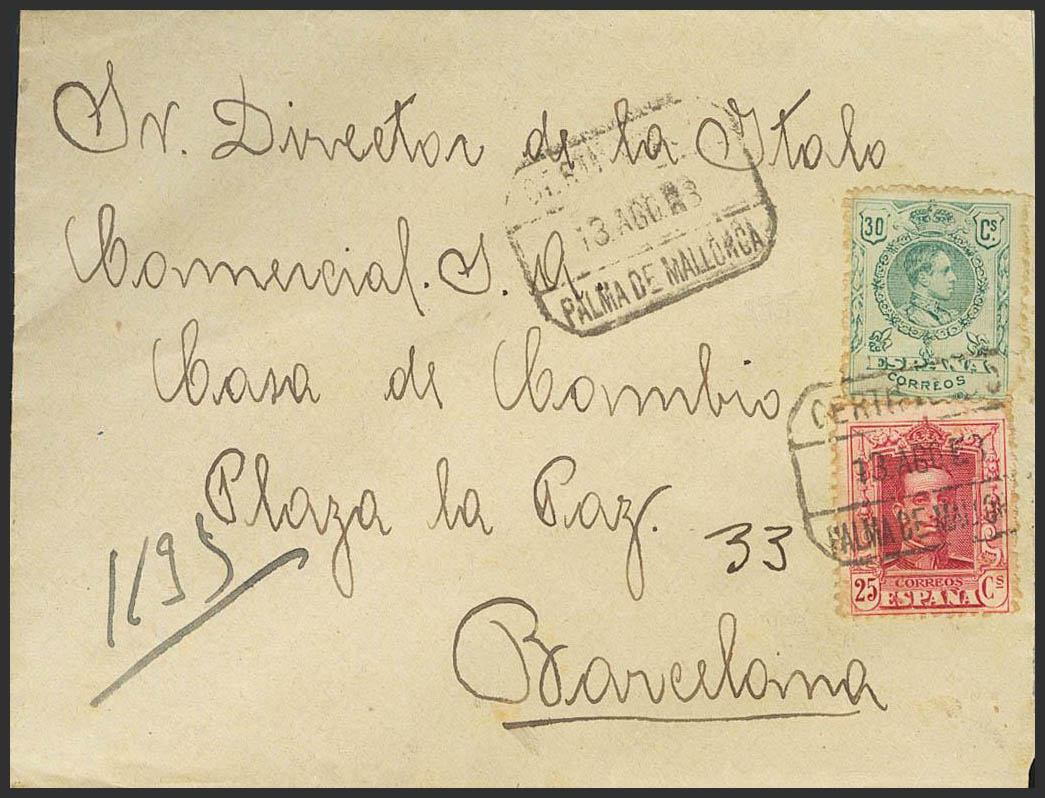 Sr. Director de la Italo
Comercial. S. A.
Casa de Cambio
Plaza la Paz.
33
Barcelona
1195
13 AGO 23
PALMA DE MALLORCA
30 Cs
ESPAÑA
CORREOS
13 AGO 23
PALMA DE MALLO
25 CORREOS Cs
ESPAÑA